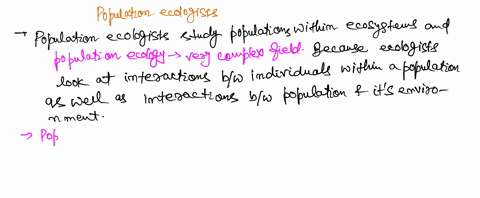 Population ecologists
→ Population ecologists study populations within ecosystems and
population ecology → very complex field. Because ecologists
look at interactions b/w individuals within a population
as well as interactions b/w population & it's enviro-
nment.
→ Pop